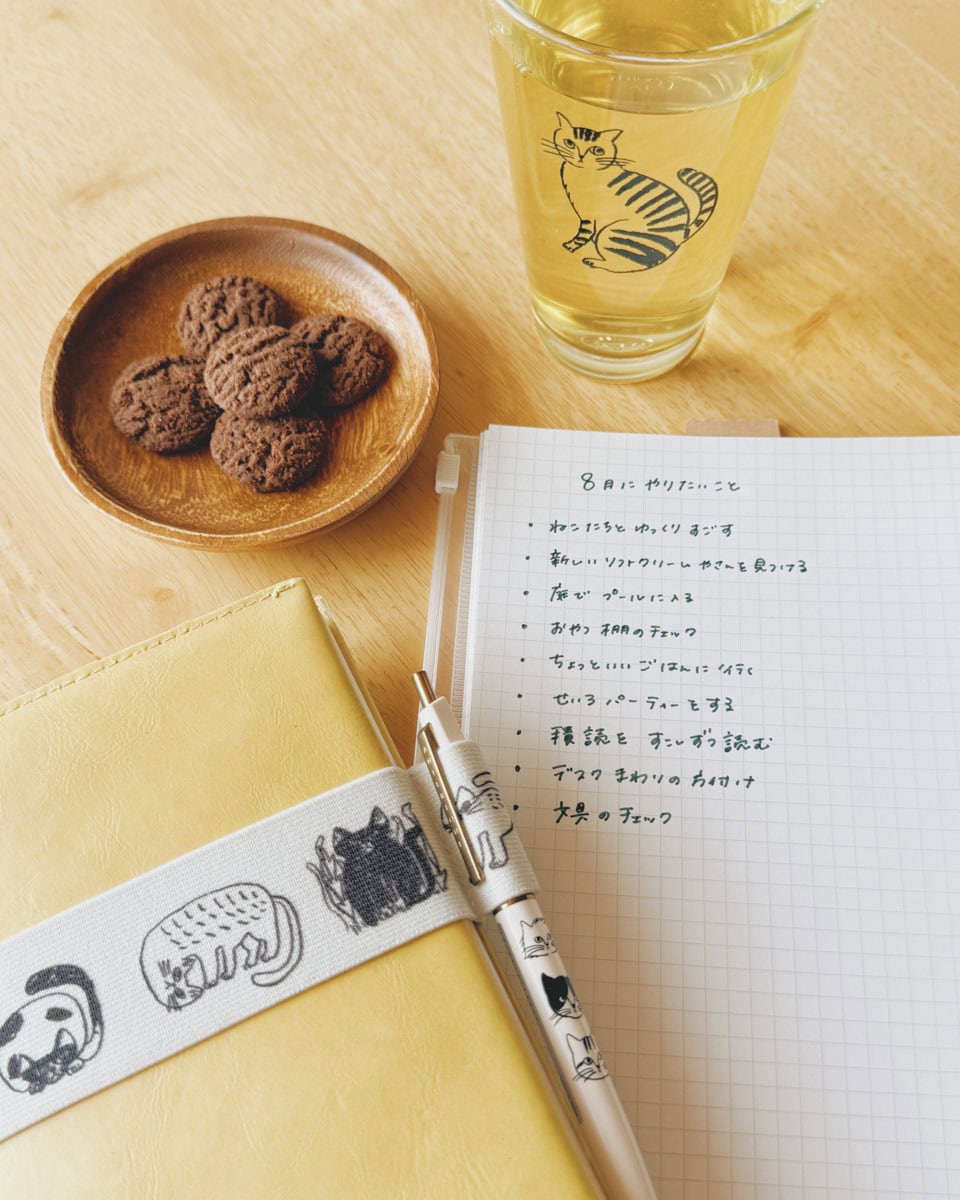 8月にやりたいこと
・ねこたちとゆっくりすごす
・新しいソフトクリームやさんを見つける
・庭でプールに入る
・おやつ棚のチェック
・ちょっといいごはんに行く
・せいろパーティーをする
・積読をすこしずつ読む
・デスクまわりの片付け
・文具のチェック